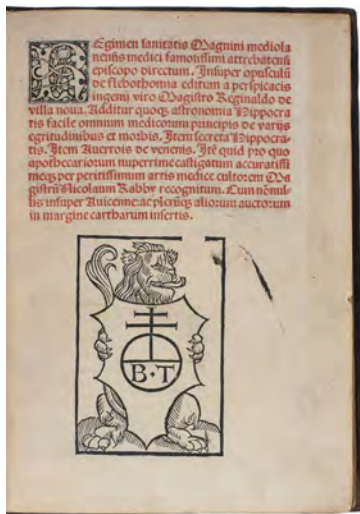 Regimen sanitatis Magnini mediola
nensis medici famosissimi attrebatensi
episcopo directum. Insuper opusculū
de flebothomia editum a perspicacis
ingenij viro Magistro Reginaldo de
villa noua. Additur quoqȝ astronomia Hippocra
tis facile omnium medicorum principis de varijs
egritudinibus et morbis. Item secreta Hippocra-
tis. Item Auerrois de venenis. Itē quid pro quo
apothecariorum nuperrime castigatum accuratissi
meqȝ per peritissimum artis medice cultorem Ma
gistrū Nicolaum Rabby recognitum. Cum nōnul-
lis insuper Auicenne: ac plerūqȝ aliorum auctorum
in margine cartharum insertis.
B·T